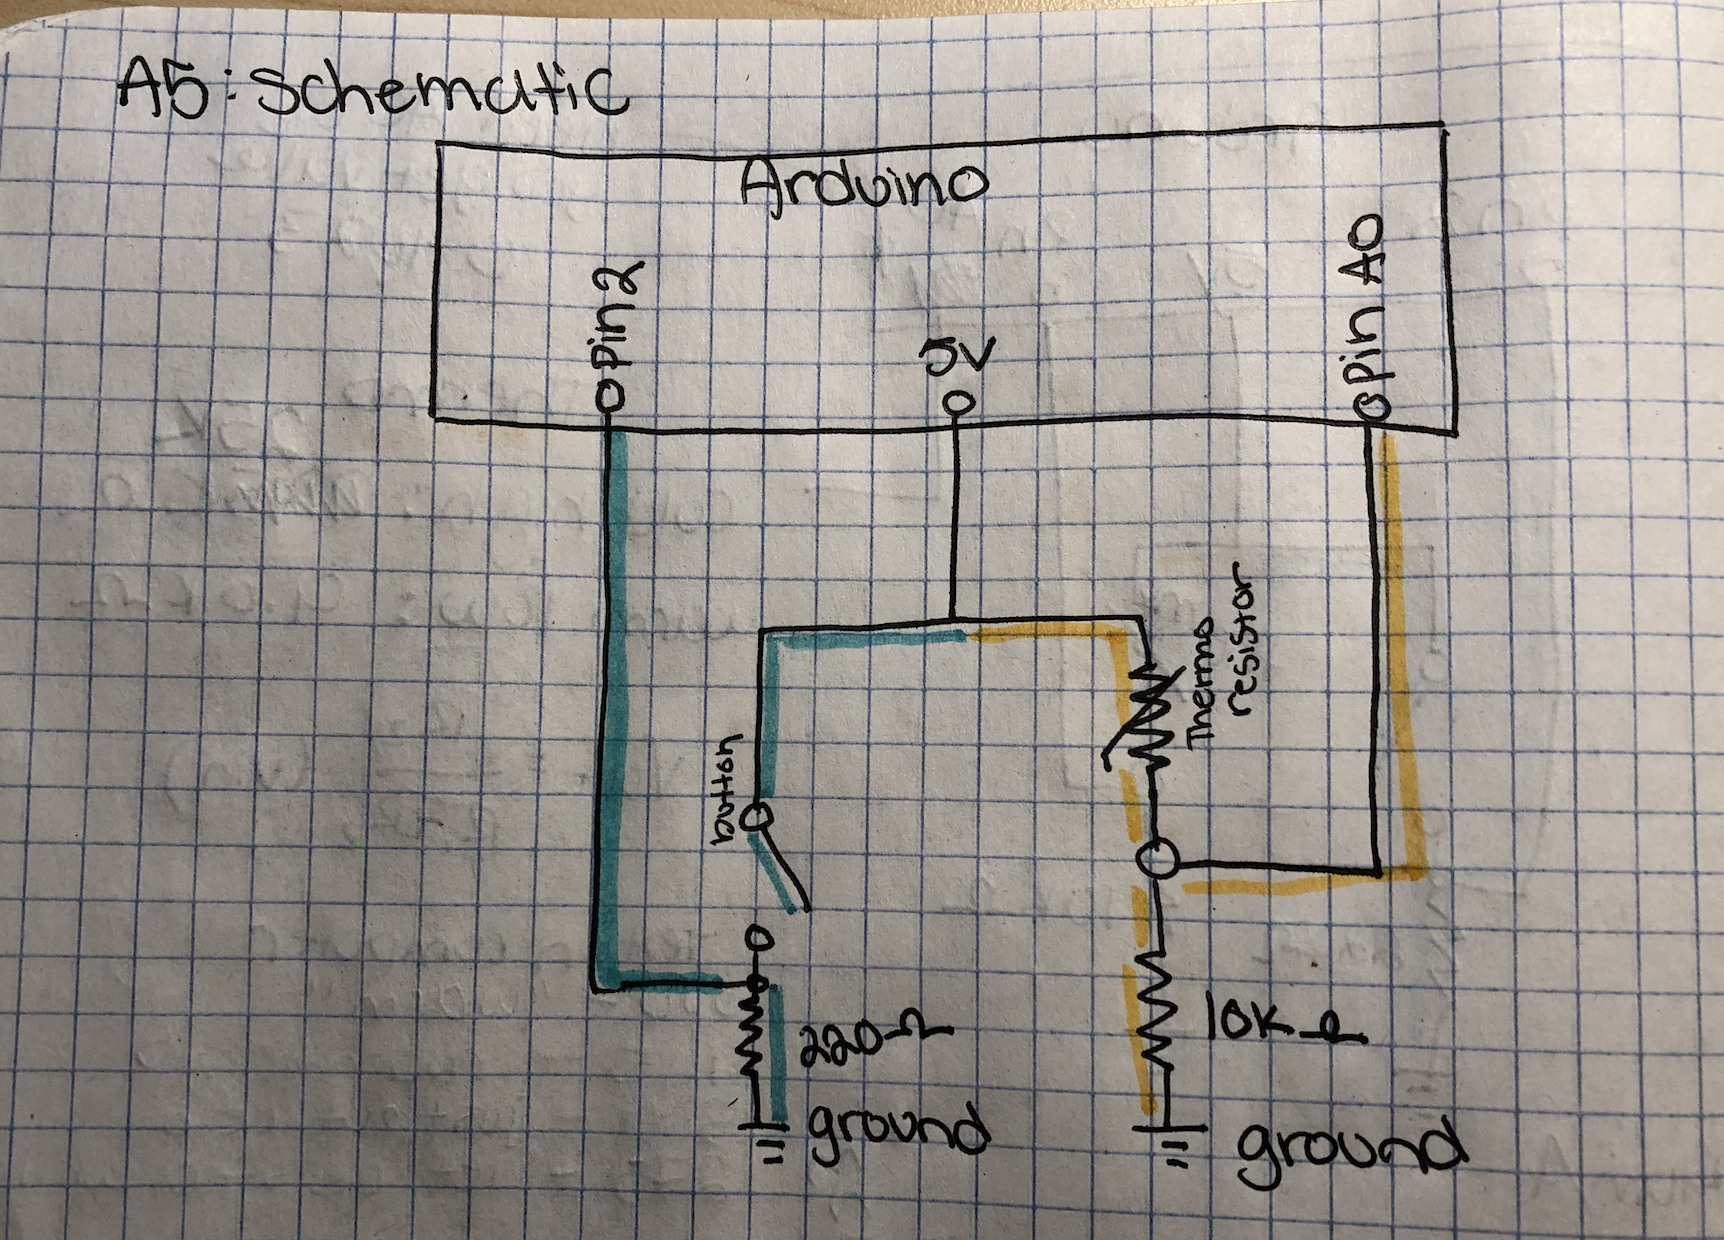 A5: Schematic
Arduino
Pin2
5V
Pin A0
Thermo
resistor
button
220Ω
10KΩ
ground
ground